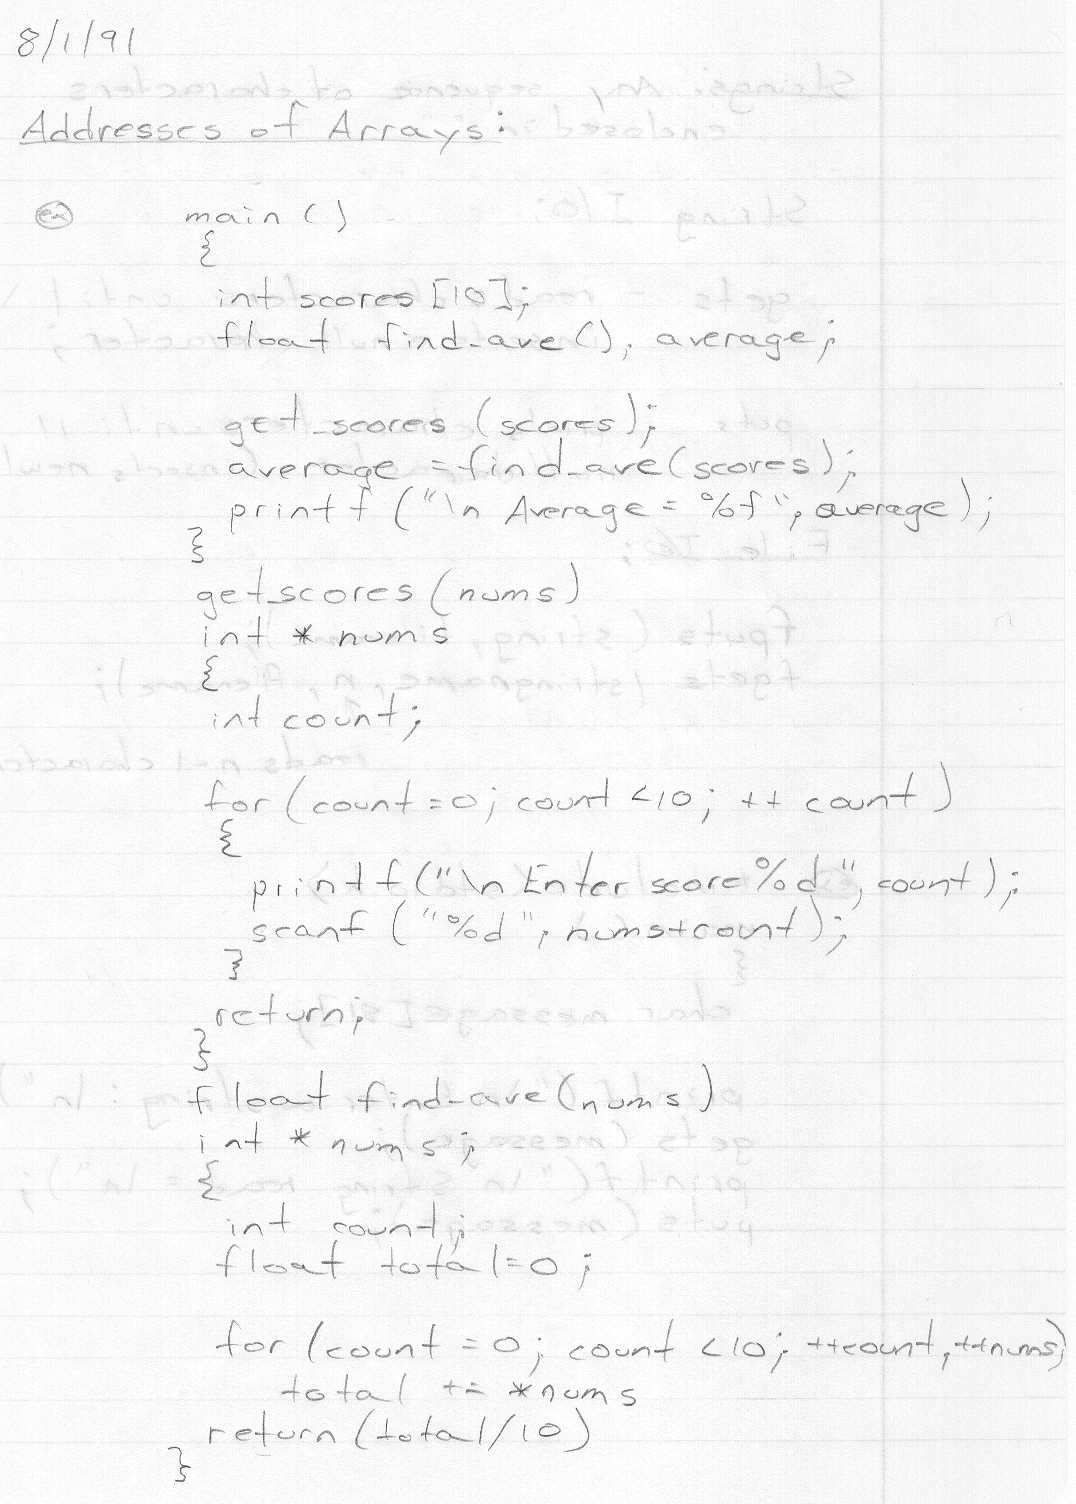 8/1/91
Addresses of Arrays:
ex main ()
{
int scores [10];
float find_ave(), average;
get_scores (scores);
average = find_ave(scores);
printf ("\n Average = %f", average);
}
get_scores (nums)
int * nums
{
int count;
for (count = 0; count < 10; ++ count )
{
printf ("\n Enter score %d", count);
scanf ("%d", nums+count);
}
return;
}
float find_ave (nums)
int * nums;
{
int count;
float total = 0;
for (count = 0; count < 10; ++count, ++nums)
total += *nums
return (total/10)
}